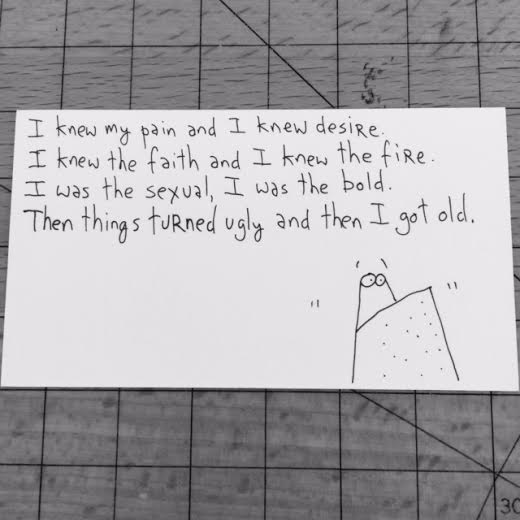 I knew my pain and I knew desire.
I knew the faith and I knew the fire.
I was the sexual, I was the bold.
Then things turned ugly and then I got old.
30